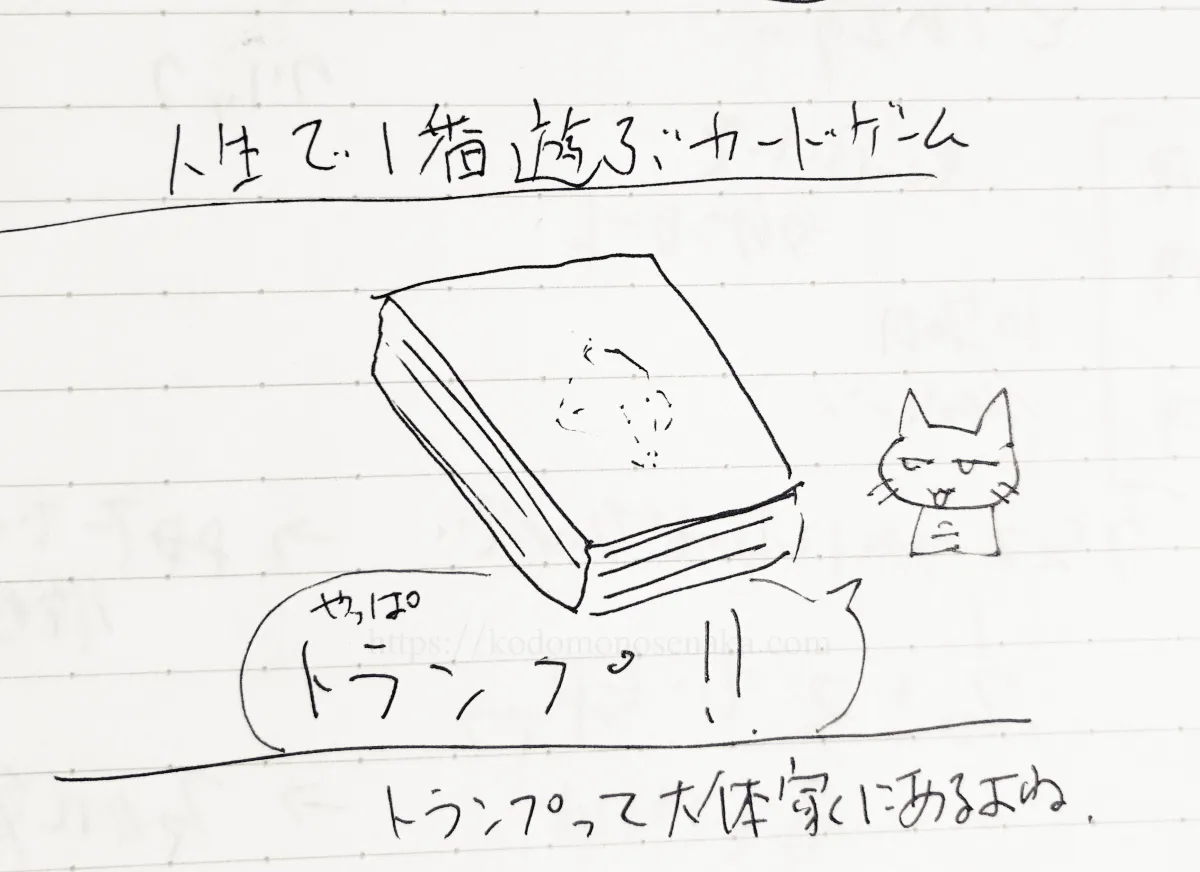 人生で1番遊ぶカードゲーム
やっぱ
トランプ!!
https://kodomonosenaka.com
トランプって大体家にあるよね.